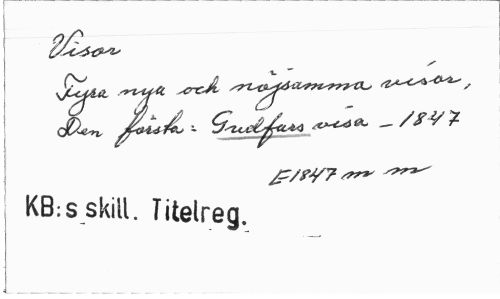 Visor
Fyra nya och nöjsamma visor,
Den första: Gudfars visa – 1847
E1847 m m
KB:s skill. Titelreg.